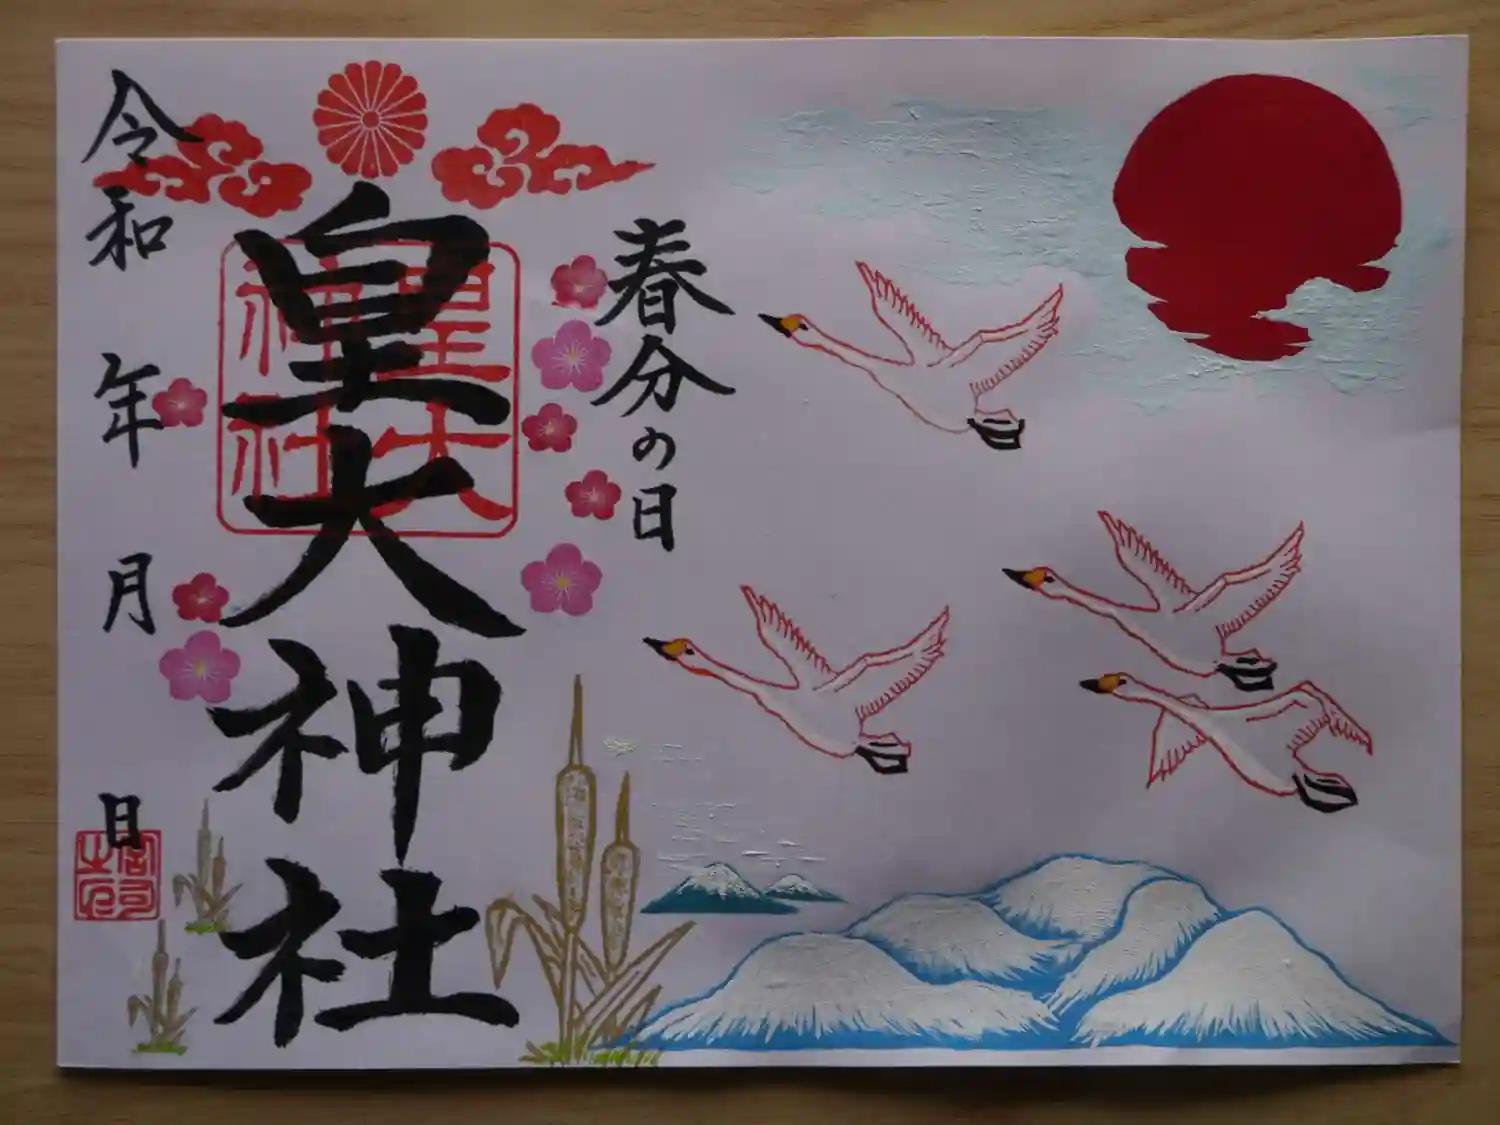 春分の日
皇大神社
皇大
神社
令和 年 月 日